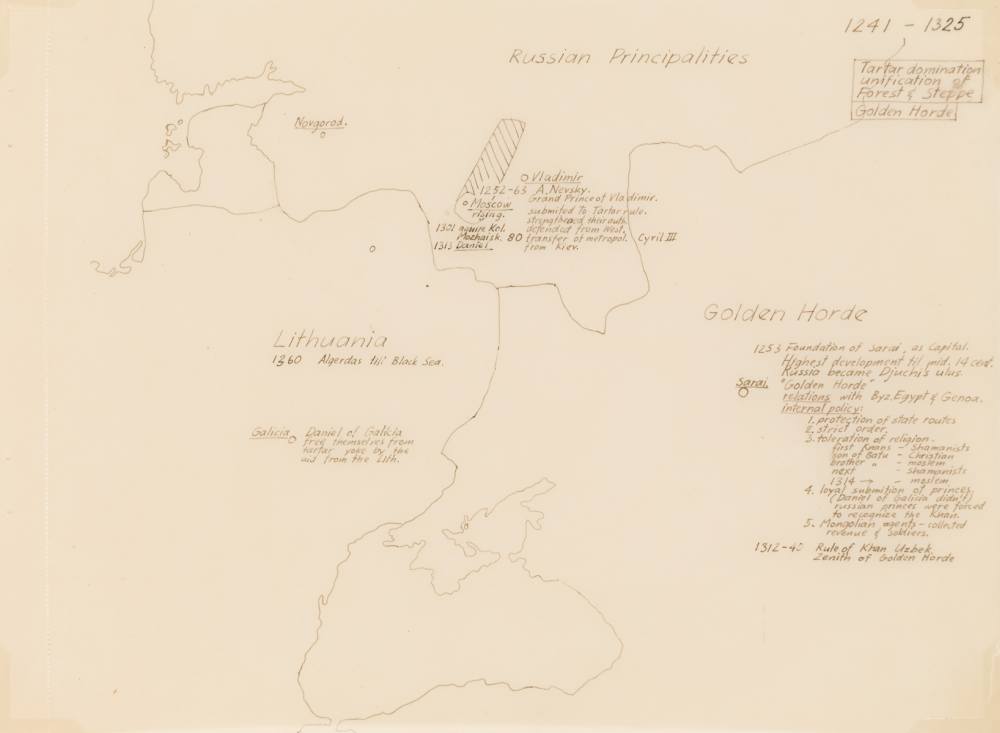 1241 - 1325
Russian Principalities
Tartar domination
unification of
Forest & Steppe
Golden Horde
Novgorod.
Vladimir
1252-63 A. Nevsky.
Grand Prince of Vladimir.
submited To Tartar rule.
strengthened their auth.
defended from West.
80 transfer of metropol. Cyril III
from Kiev.
Moscow
rising.
1301 aquire Kol.
Mozhaisk.
1313 Daniel
Golden Horde
Lithuania
1360 Algerdas till Black Sea.
1253 Foundation of Sarai, as Capital.
Highest development til mid. 14 cent.
Russia became Djuchi's ulus
Sarai. "Golden Horde"
relations with Byz. Egypt & Genoa.
internal policy:
1. protection of state routes
2. strict order.
3. toleration of religion.
first Khans - Shamanists
son of Batu - Christian
brother " - moslem
next - shamanists
1314 → - moslem
4. loyal submition of princes
(Daniel of Galicia didn't)
russian princes were forced
to recognize the Khan.
5. Mongolian agents - collected
revenue & soldiers.
1312-40 Rule of Khan Uzbek
Zenith of Golden Horde
Galicia
Daniel of Galicia
freed themselves from
tartar yoke by the
aid from the Lith.